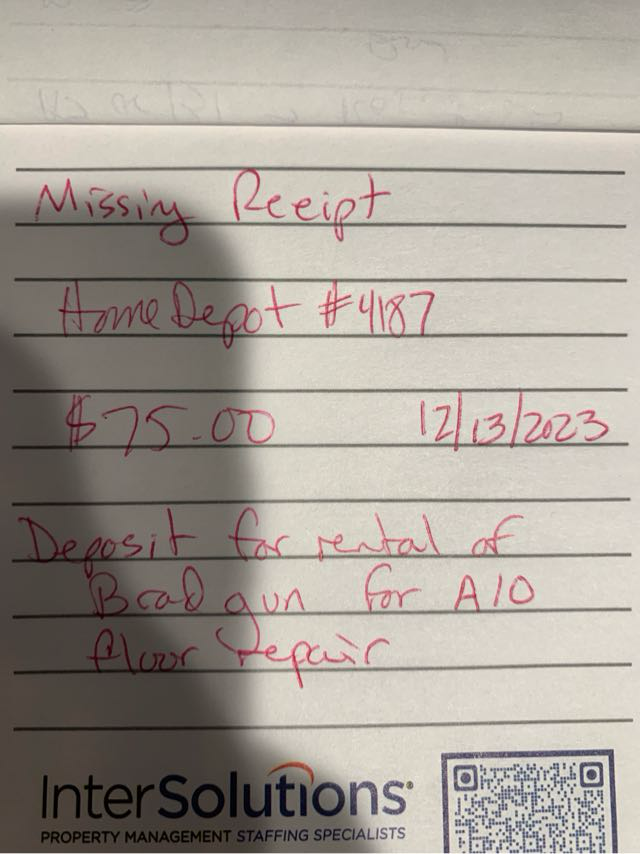 Missing Receipt
Home Depot #4187
$75.00 12/13/2023
Deposit for rental of
Brad gun for A10
floor repair
InterSolutions
PROPERTY MANAGEMENT STAFFING SPECIALISTS